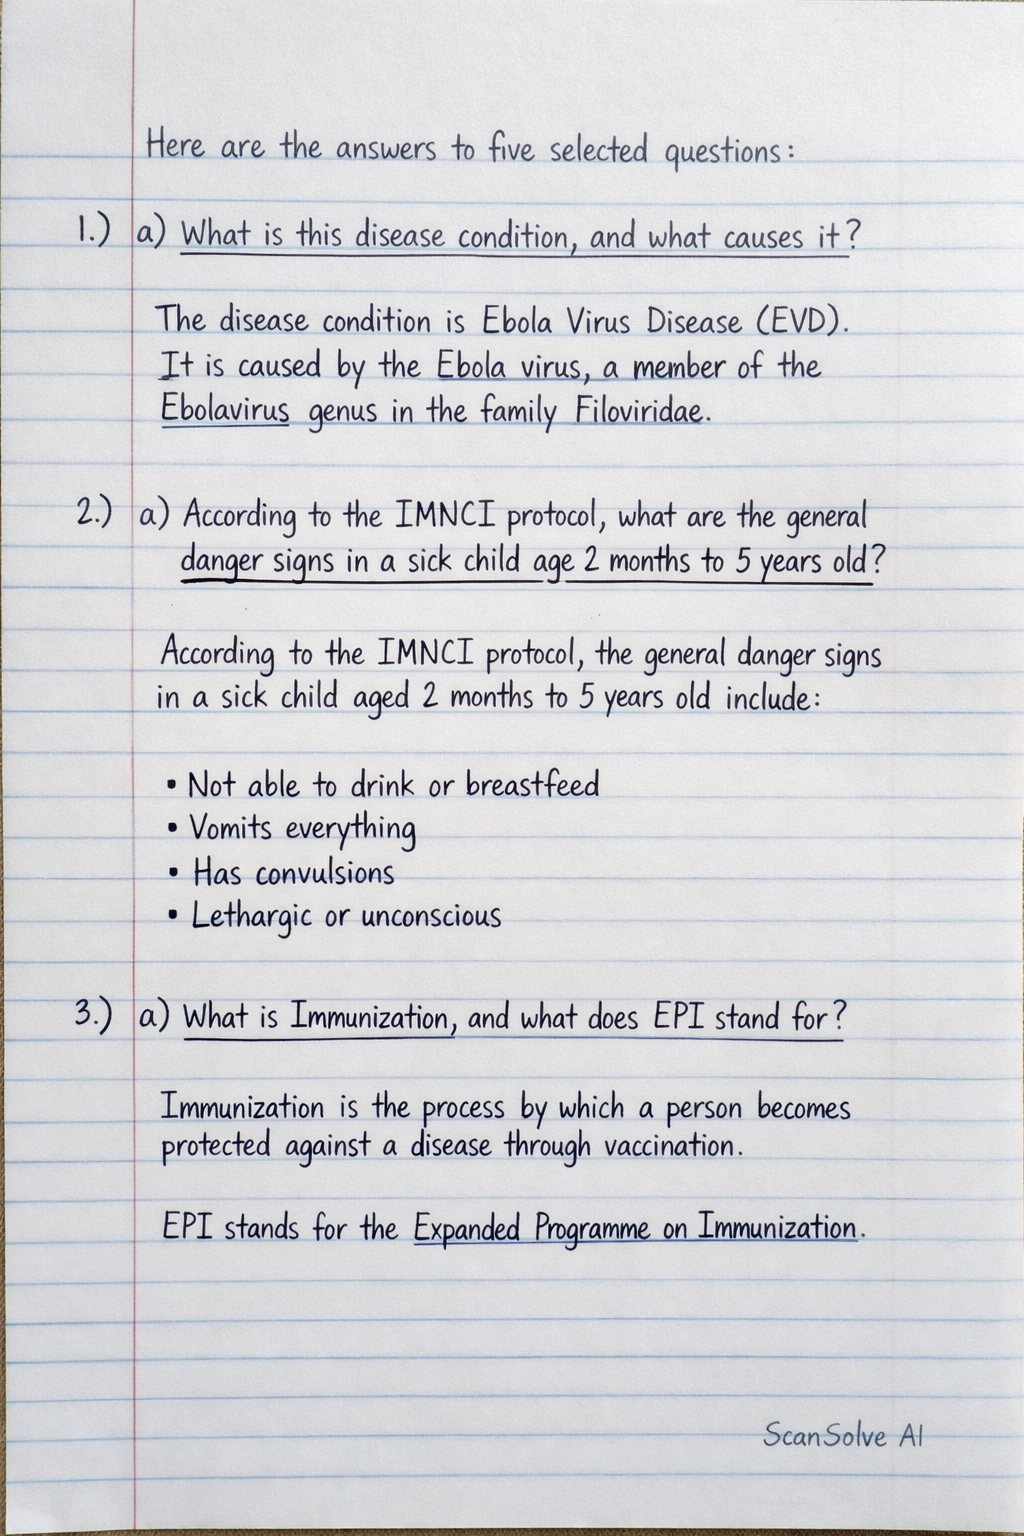 Here are the answers to five selected questions:
1.) a) What is this disease condition, and what causes it?
The disease condition is Ebola Virus Disease (EVD).
It is caused by the Ebola virus, a member of the
Ebolavirus genus in the family Filoviridae.
2.) a) According to the IMNCI protocol, what are the general
danger signs in a sick child age 2 months to 5 years old?
According to the IMNCI protocol, the general danger signs
in a sick child aged 2 months to 5 years old include:
• Not able to drink or breastfeed
• Vomits everything
• Has convulsions
• Lethargic or unconscious
3.) a) What is Immunization, and what does EPI stand for?
Immunization is the process by which a person becomes
protected against a disease through vaccination.
EPI stands for the Expanded Programme on Immunization.
ScanSolve AI